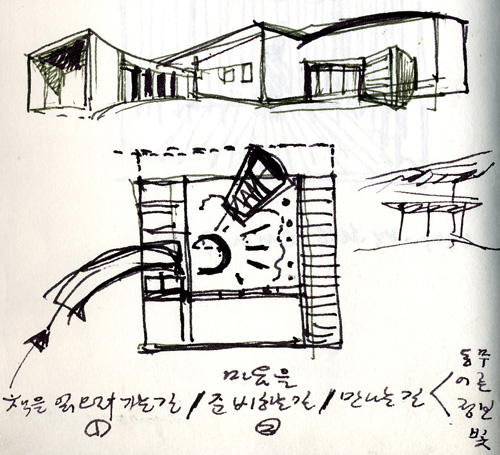 마음을
책을 읽으러 가는길 / 준비하는길 / 만나는길
① ②
동무
어른
정원
빛